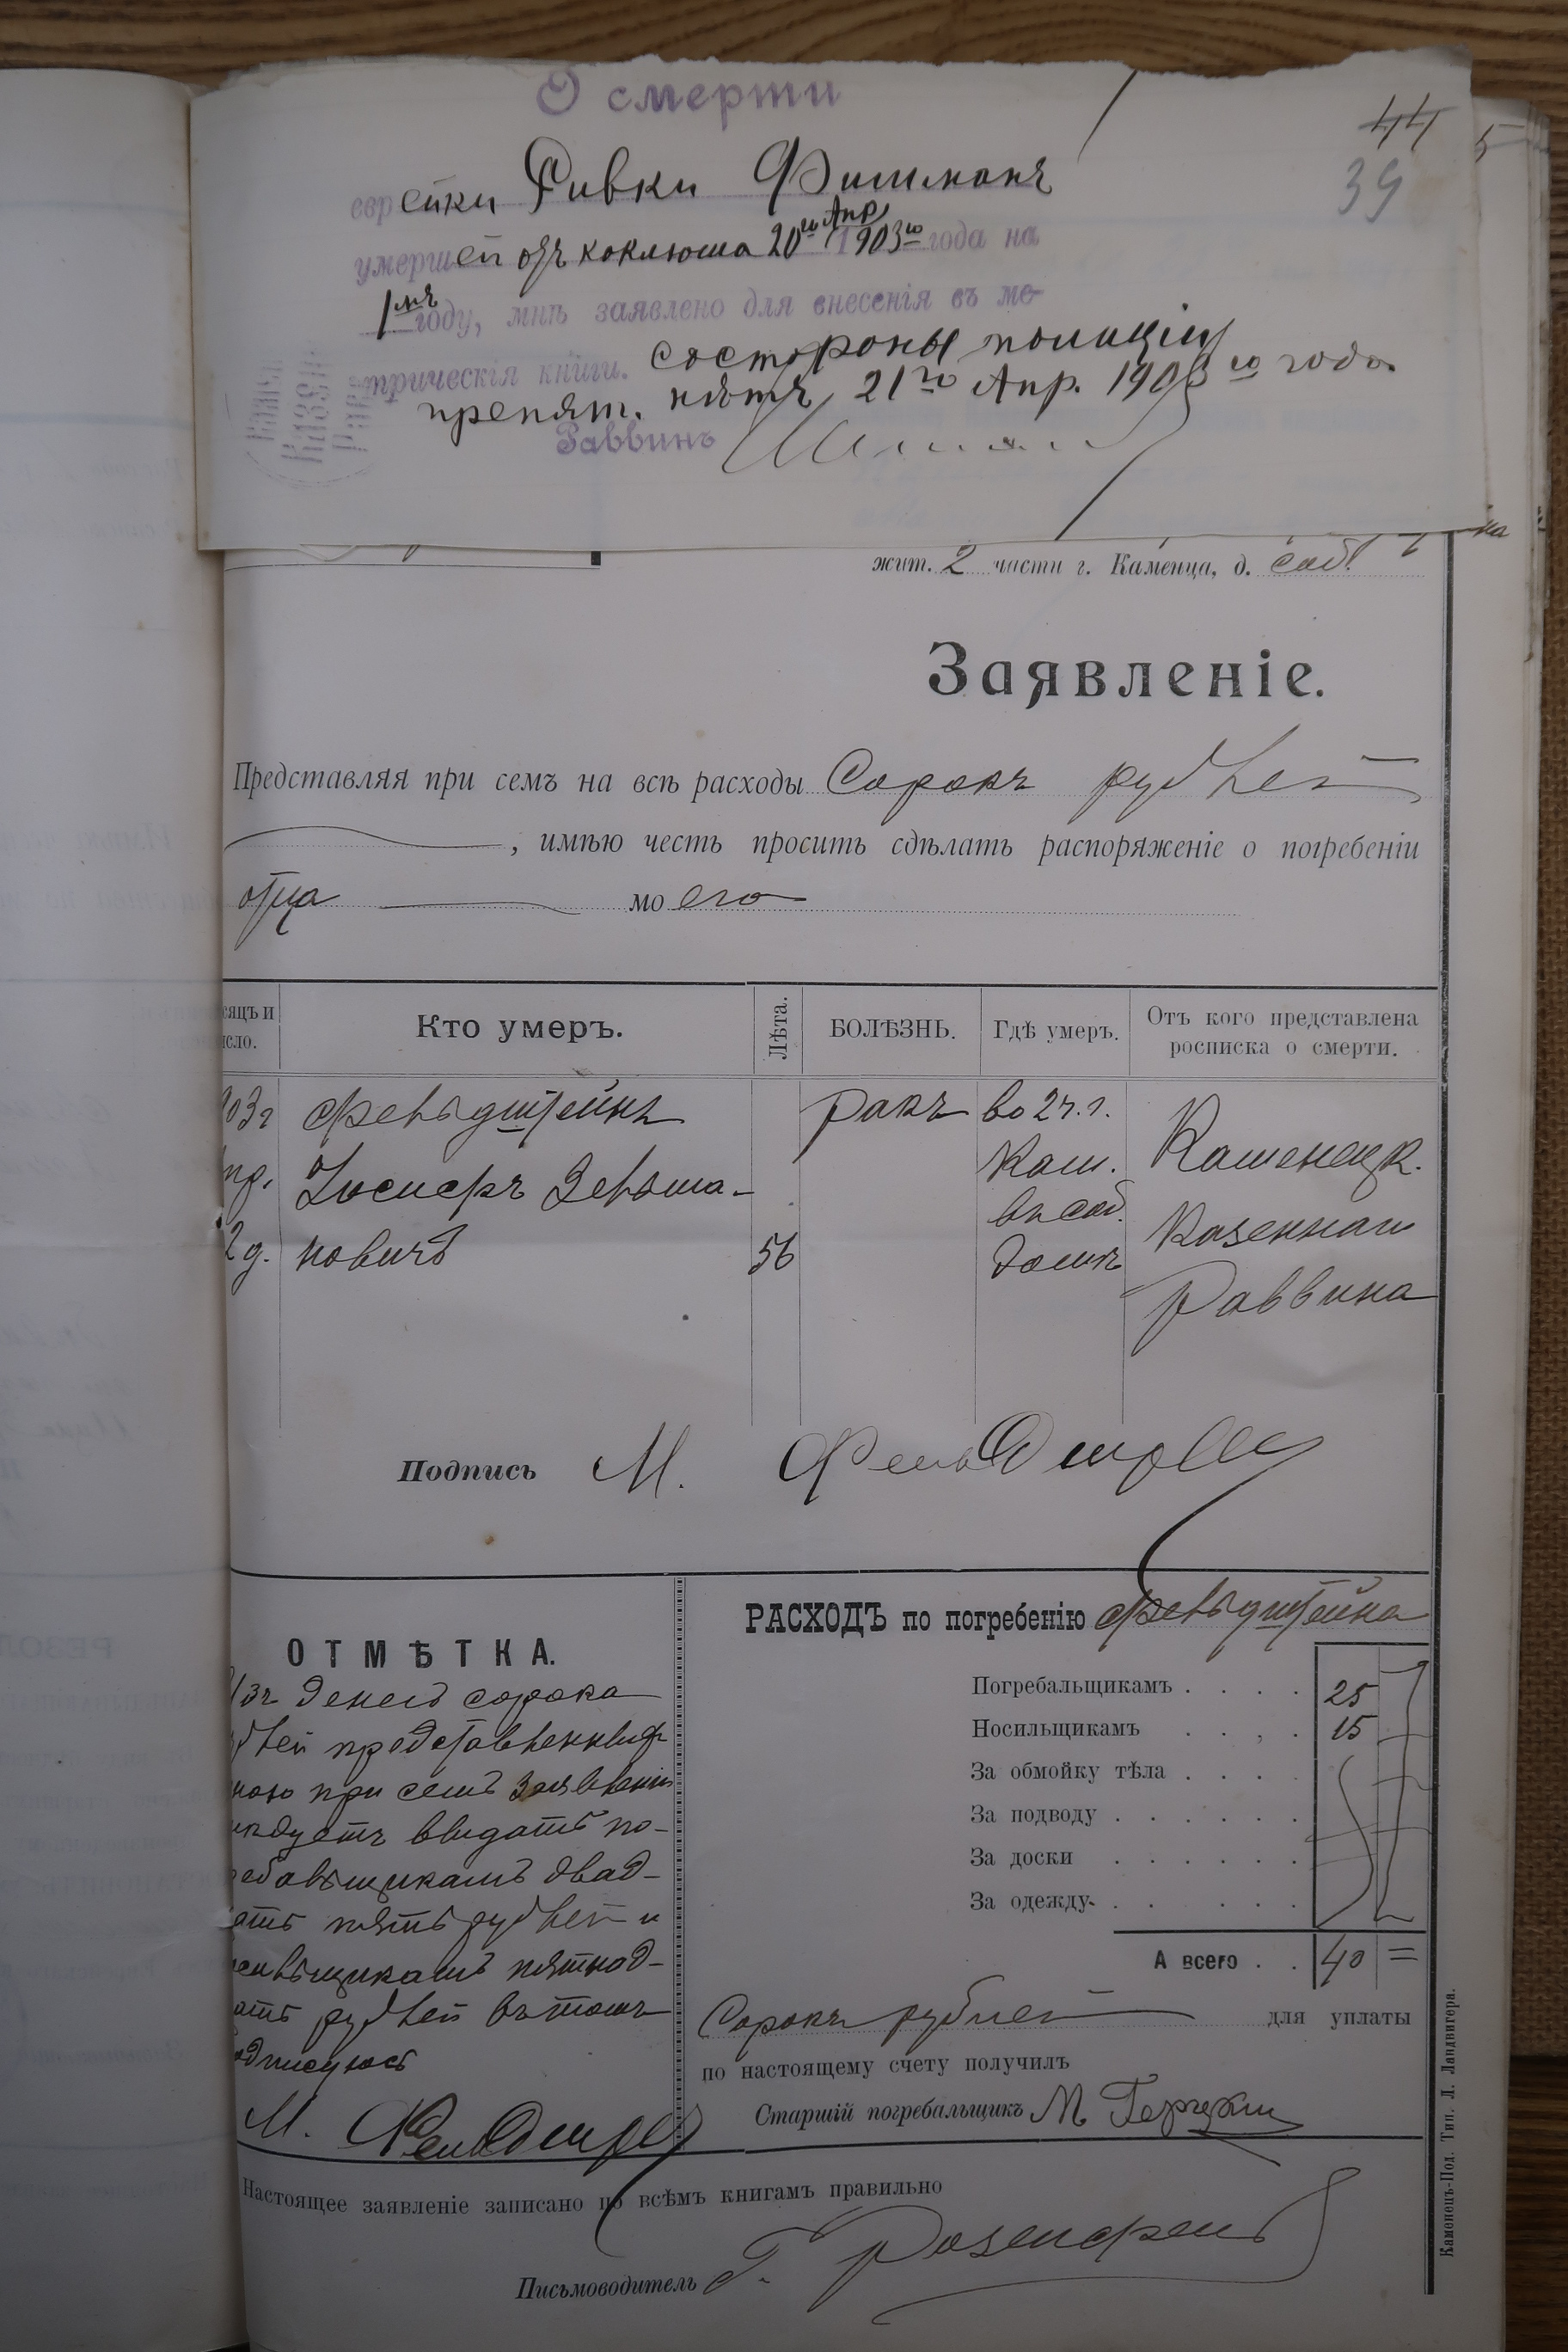 О смерти
44
39
5
еврейки Ривки Фишманъ
умершей отъ коклюша 20го Апр. 1903го года на
1мъ году, мнѣ заявлено для внесенія въ ме-
трическія книги. со стороны полиціи
препят. нѣтъ, 21го Апр. 1903го года
Раввинъ
жит. 2 части г. Каменца, д. соб.
Заявленіе.
Представляя при семъ на всѣ расходы Сорокъ рублей
, имѣю честь просить сдѣлать распоряженіе о погребеніи
отца моего
сяцъ и
исло.
Кто умеръ.
Лѣта.
БОЛѢЗНЬ.
Гдѣ умеръ.
Отъ кого представлена
росписка о смерти.
903г Фельдштейнъ ракъ во 2 ч. г. Каменецк.
пр. Іосифъ Зельма- Кам. Казеннаго
2 д. новичъ 56 въ соб. Раввина
домѣ
Подпись М. Фельдште
ОТМѢТКА.
Изъ денегъ сорока
блей представленныхъ
мною при семъ заявленіи
слѣдуетъ выдать по-
ребальщикамъ двад-
цать пять рублей и
сильщикамъ пятнад-
цать рублей въ томъ
одписуюсь
М. Фельдште
РАСХОДЪ по погребенію Фельдштейна
Погребальщикамъ . . . . 25
Носильщикамъ . . . 15
За обмойку тѣла . . . .
За подводу . . . . .
За доски . . . . . .
За одежду . . . . .
А всего . . 40 =
Сорокъ рублей для уплаты
по настоящему счету получилъ
Старшій погребальщикъ М.
Настоящее заявленіе записано по всѣмъ книгамъ правильно
Письмоводитель Г. Розенфельд
Каменецъ-Под. Тип. Л. Ландвигера.